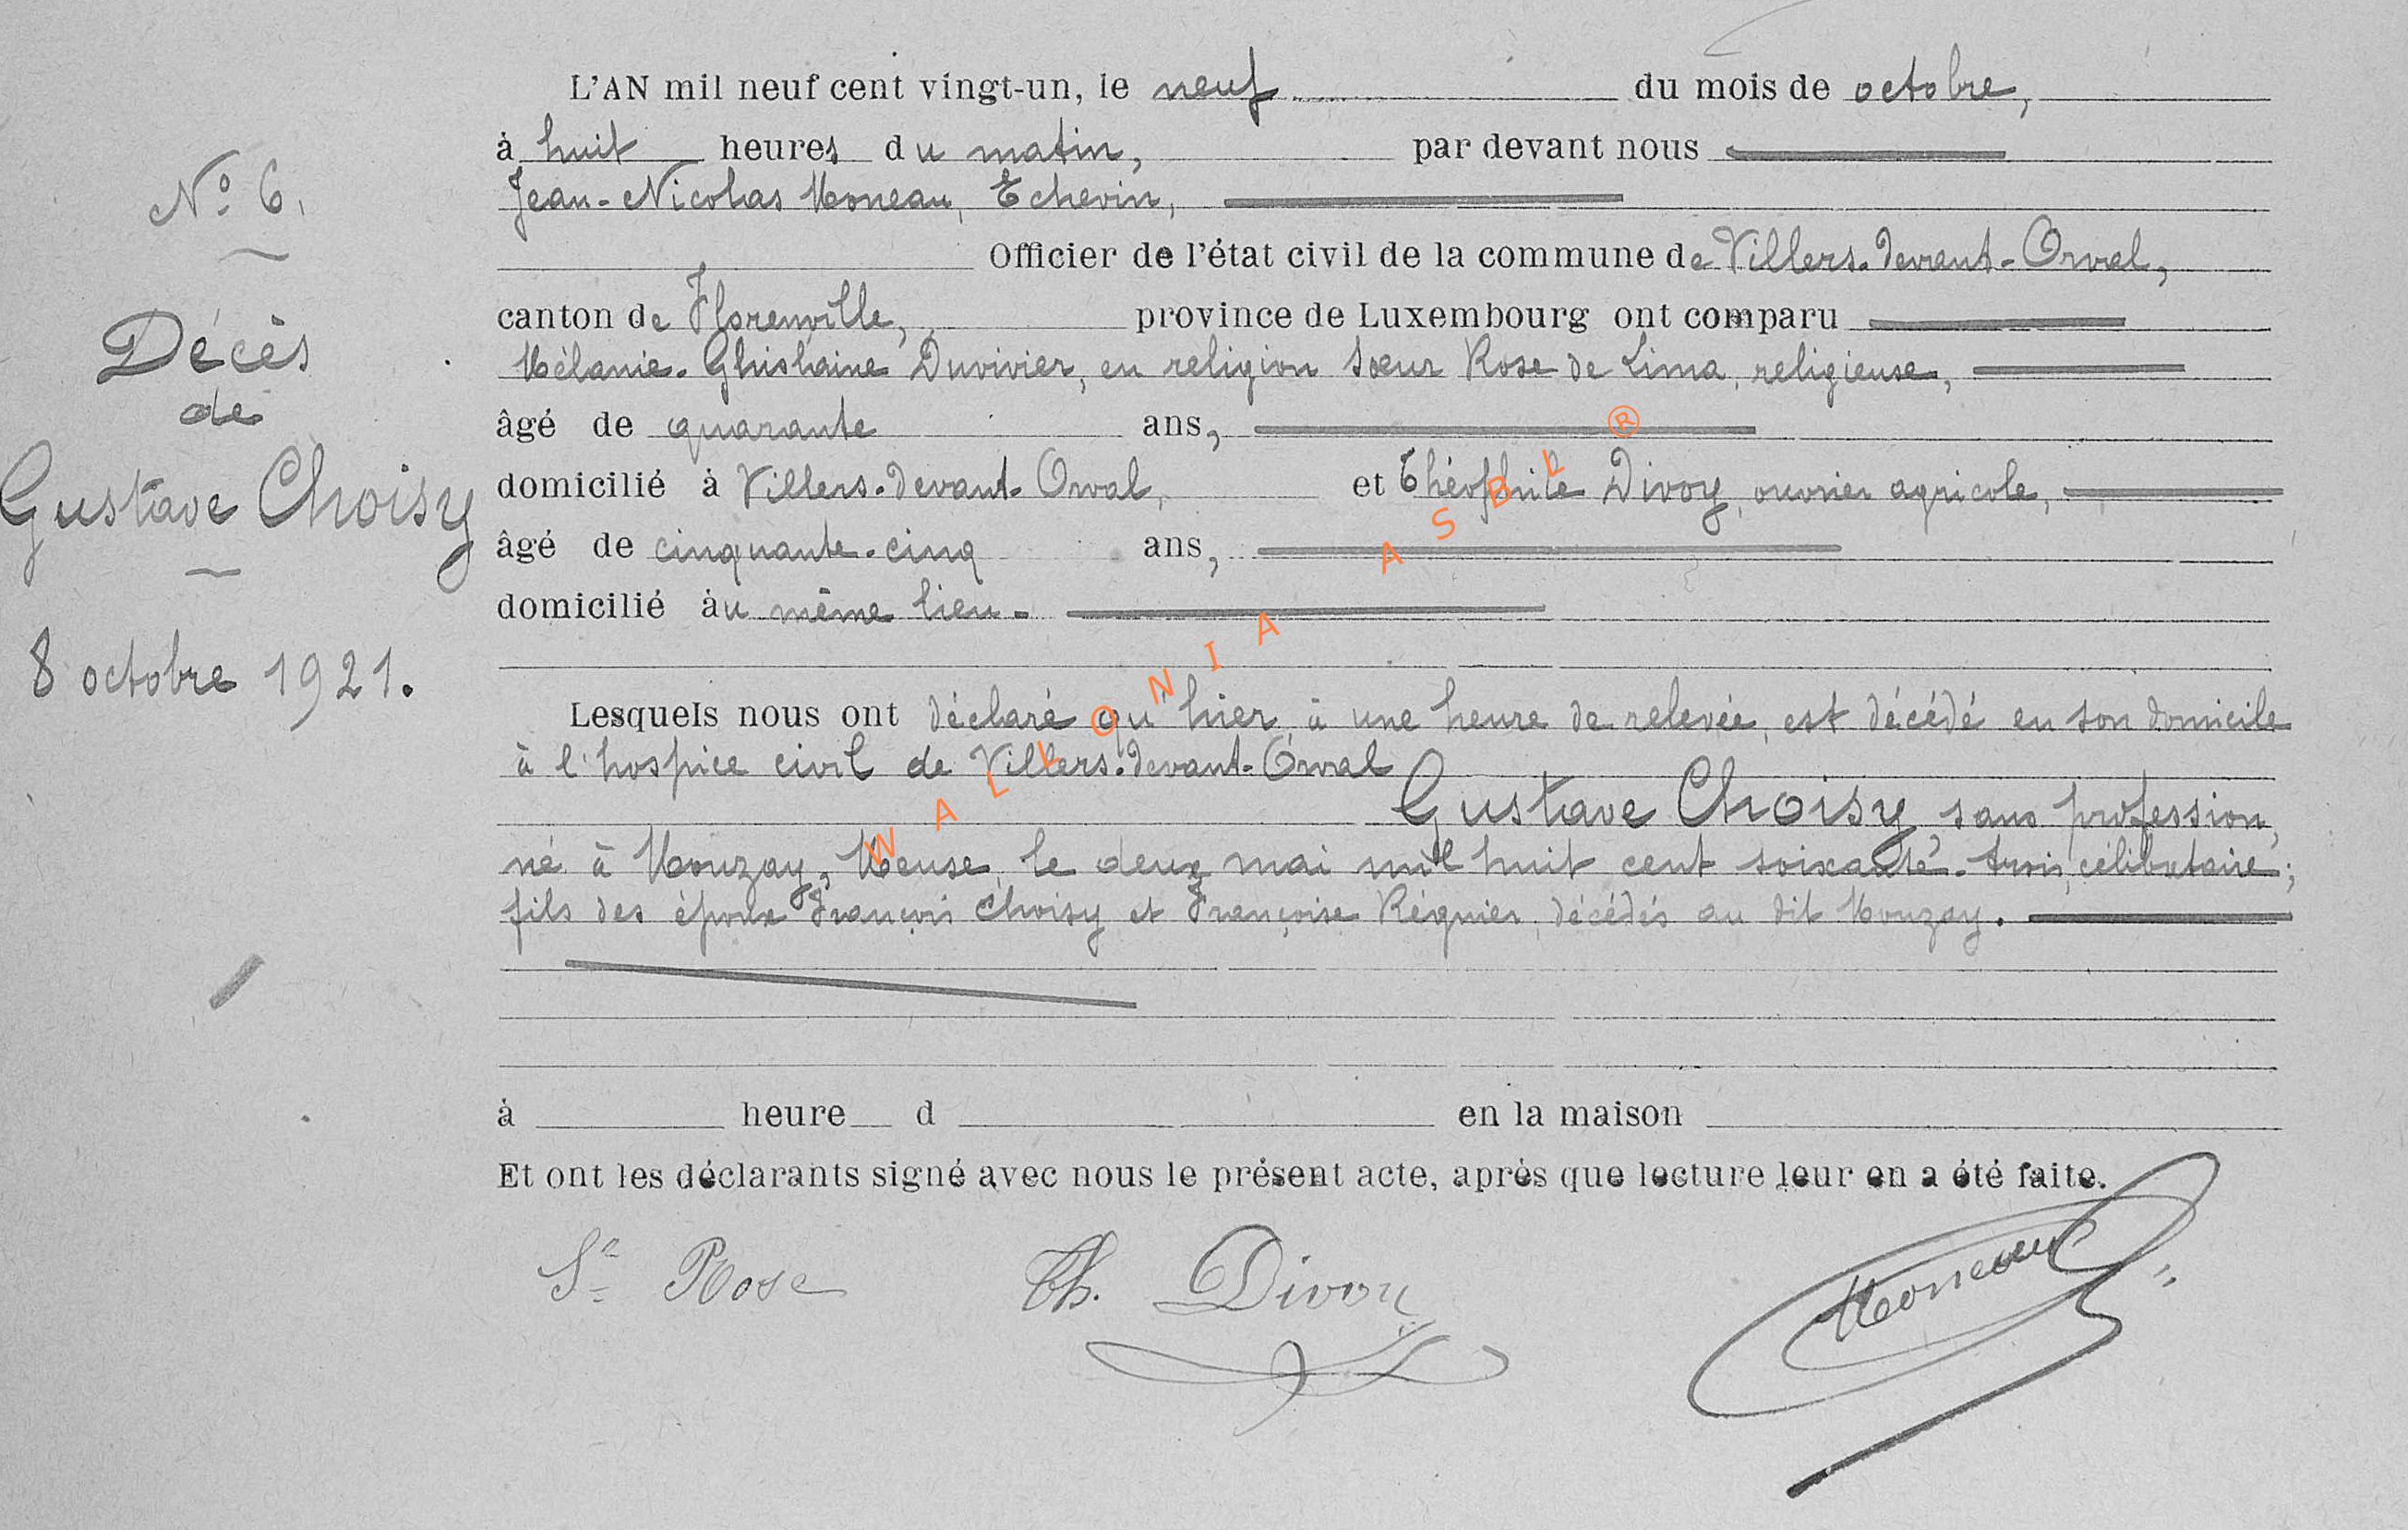 N° 6.
Décès
de
Gustave Choisy
8 octobre 1921.
L'AN mil neuf cent vingt-un, le neuf du mois de octobre,
à huit heures du matin, par devant nous
Jean-Nicolas Moneau, Echevin,
Officier de l'état civil de la commune de Villers-devant-Orval,
canton de Florenville, province de Luxembourg ont comparu
Mélanie-Ghislaine Duvivier, en religion Sœur Rose de Lima, religieuse,
âgé de quarante ans,
domicilié à Villers-devant-Orval, et Théophile Divoy, ouvrier agricole,
âgé de cinquante-cinq ans,
domicilié àu même lieu.
Lesquels nous ont déclaré qu'hier, à une heure de relevée, est décédé en son domicile
à l'hospice civil de Villers-devant-Orval
Gustave Choisy, sans profession,
né à Mouzay, Meuse, le deux mai mil huit cent soixante-trois, célibataire;
fils des époux François Choisy et Françoise Régnier, décédés au dit Mouzay.
à heure d en la maison
Et ont les déclarants signé avec nous le présent acte, après que lecture leur en a été faite.
Sr Rose Th. Divoy Moneau
WALLONIA ASBL ®